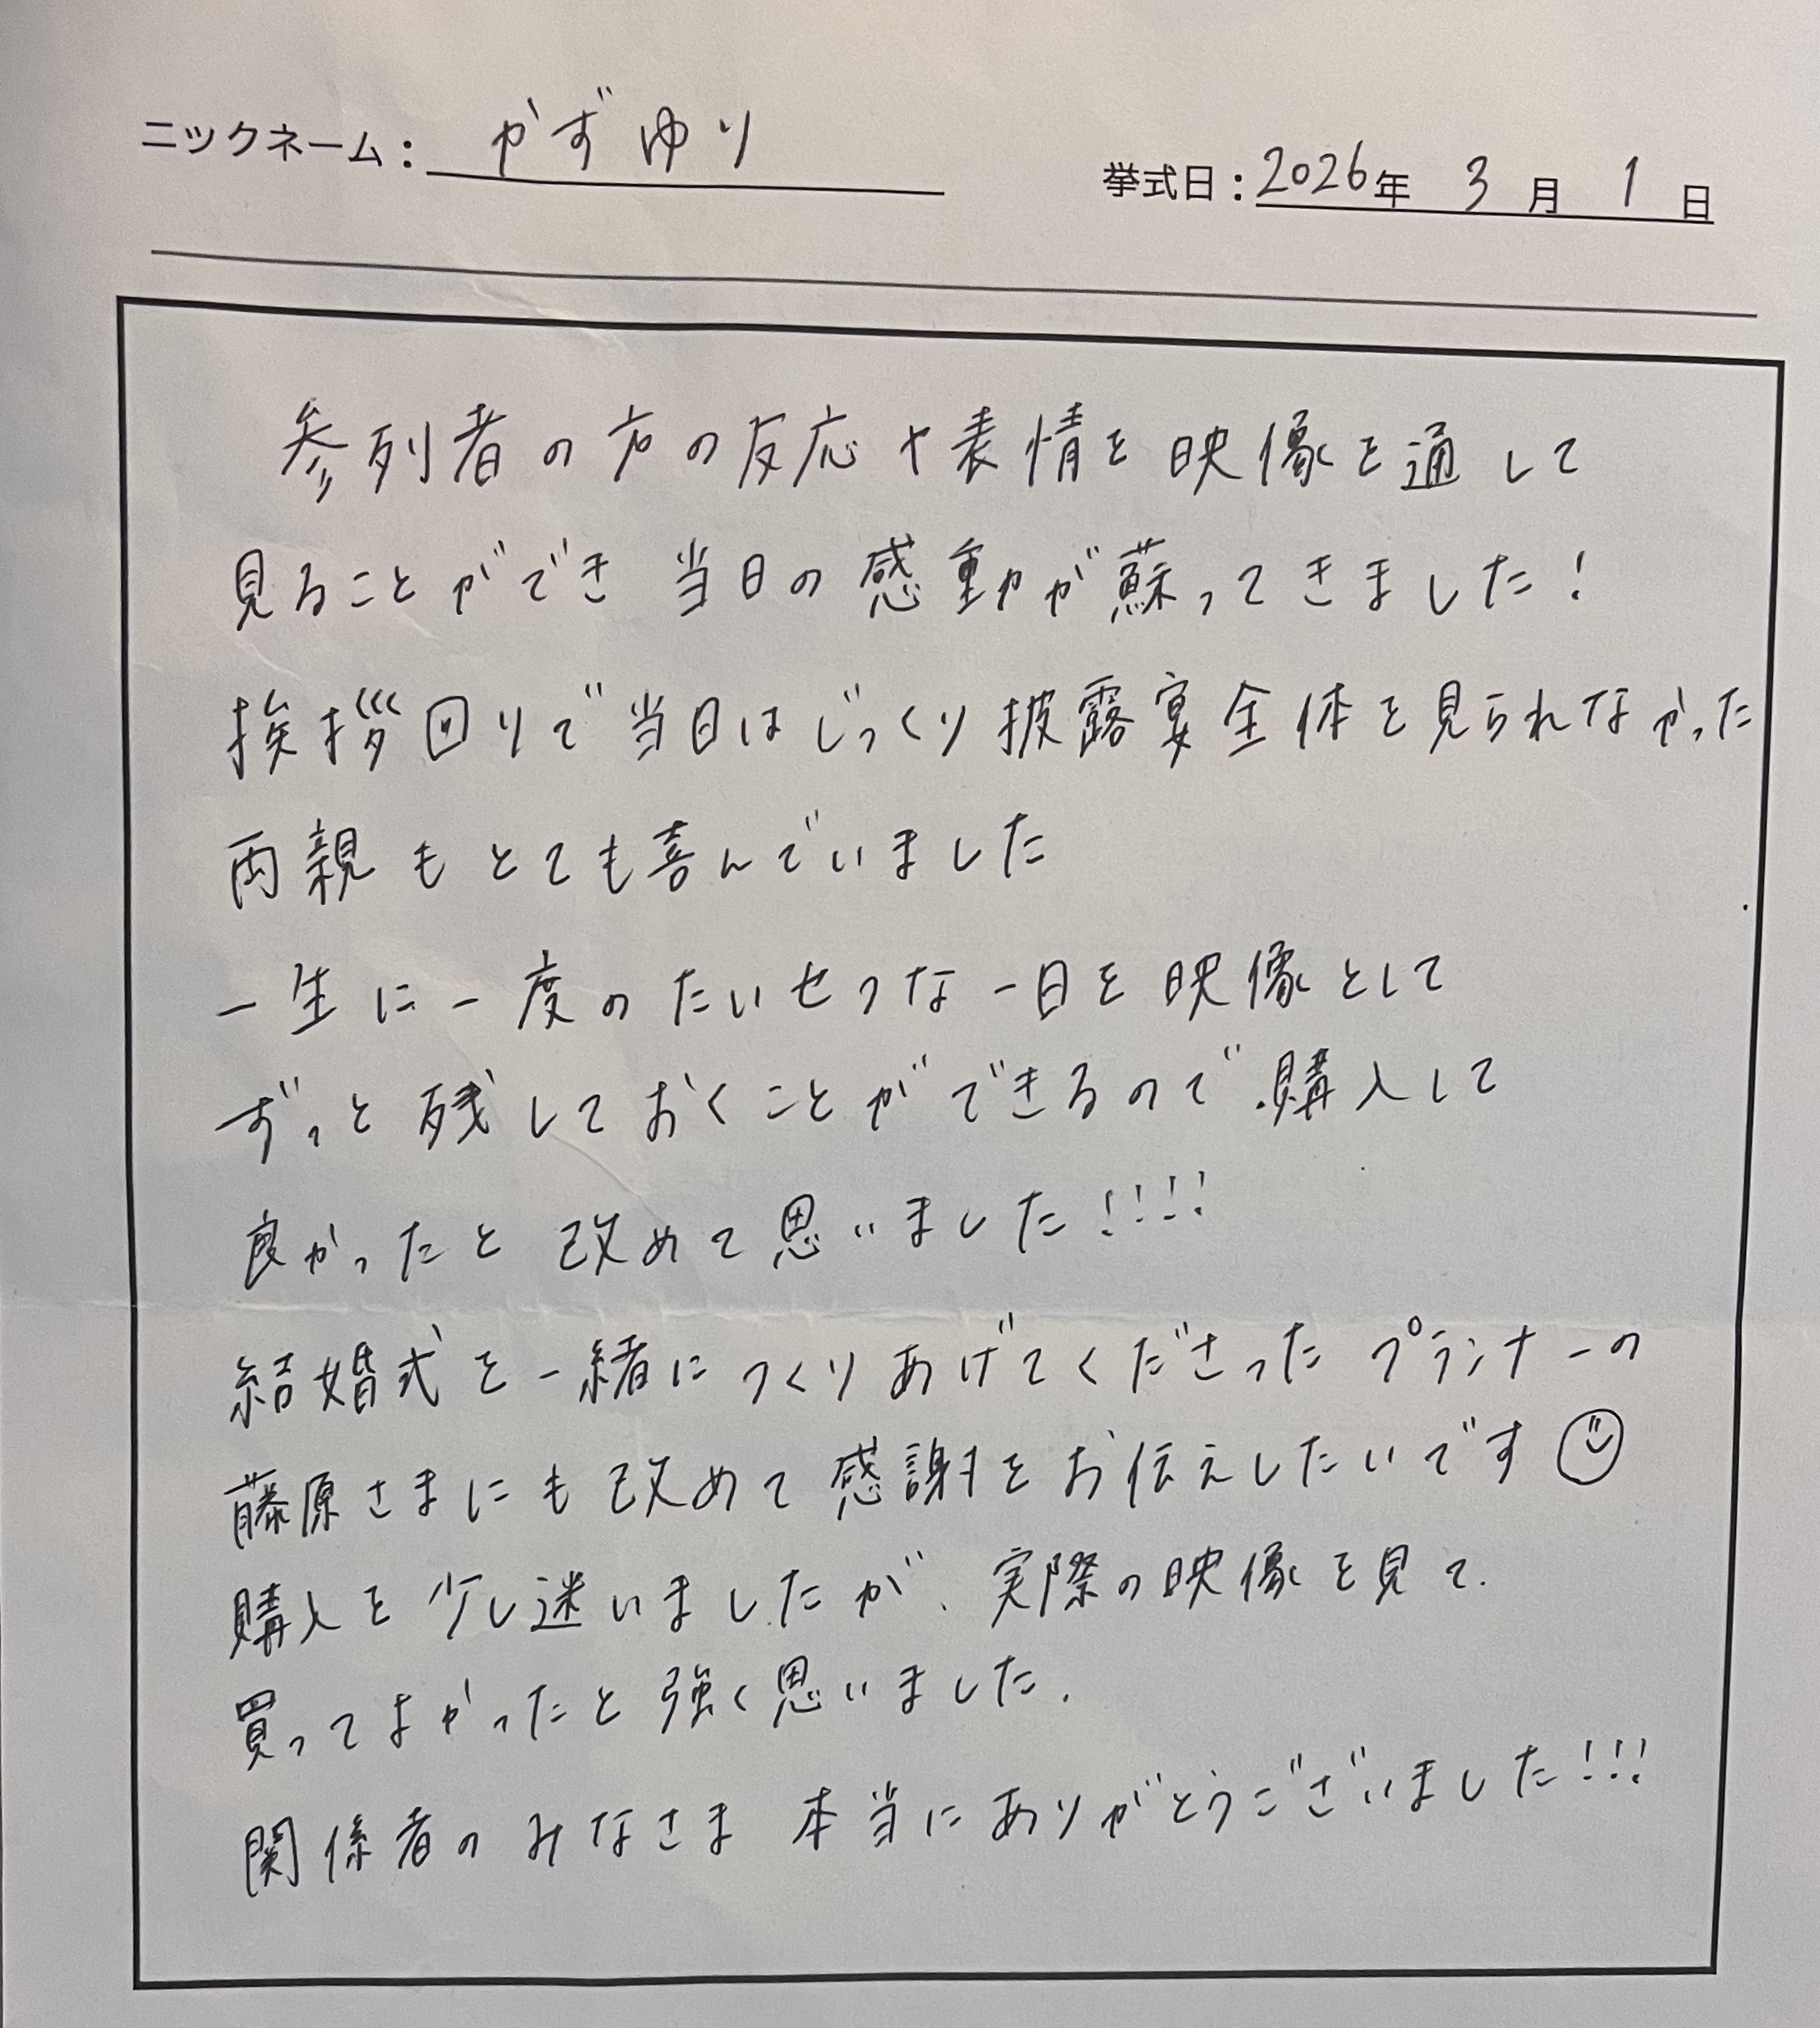 ニックネーム: かずゆり
挙式日: 2026年 3月 1日
参列者の方の反応や表情を映像を通して
見ることができ 当日の感動が蘇ってきました!
挨拶回りで当日はじっくり披露宴全体を見られなかった
両親もとても喜んでいました
一生に一度のたいせつな一日を映像として
ずっと残しておくことができるので購入して
良かったと改めて思いました!!!!
結婚式を一緒につくりあげてくださったプランナーの
藤原さまにも改めて感謝をお伝えしたいです☺
購入を少し迷いましたが、実際の映像を見て、
買ってよかったと強く思いました。
関係者のみなさま 本当にありがとうございました!!!